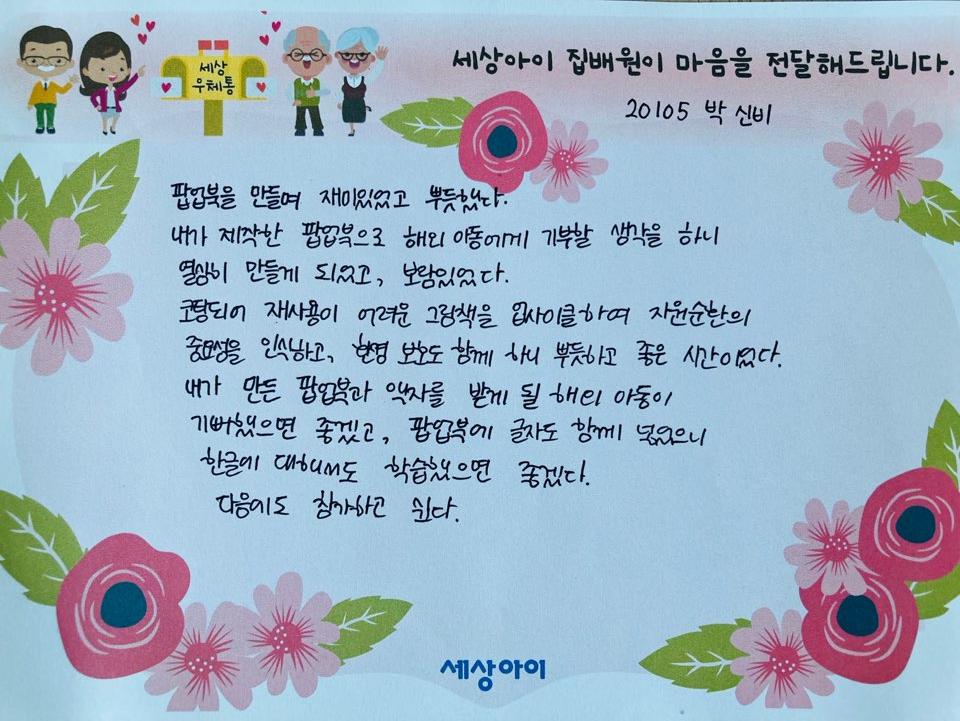 세상
우체통
세상아이 집배원이 마음을 전달해드립니다.
20105 박신비
팝업북을 만들며 재미있었고 뿌듯했다.
내가 제작한 팝업북으로 해외 아동에게 기부할 생각을 하니
열심히 만들게 되었고, 보람있었다.
코팅되어 재사용이 어려운 그림책을 업사이클하여 자원순환의
중요성을 인식하고, 환경 보호도 함께 하니 뿌듯하고 좋은 시간이었다.
내가 만든 팝업북과 액자를 받게 될 해외 아동이
기뻐했으면 좋겠고, 팝업북에 글자도 함께 넣었으니
한글에 대해서도 학습했으면 좋겠다.
다음에도 참가하고 싶다.
세상아이